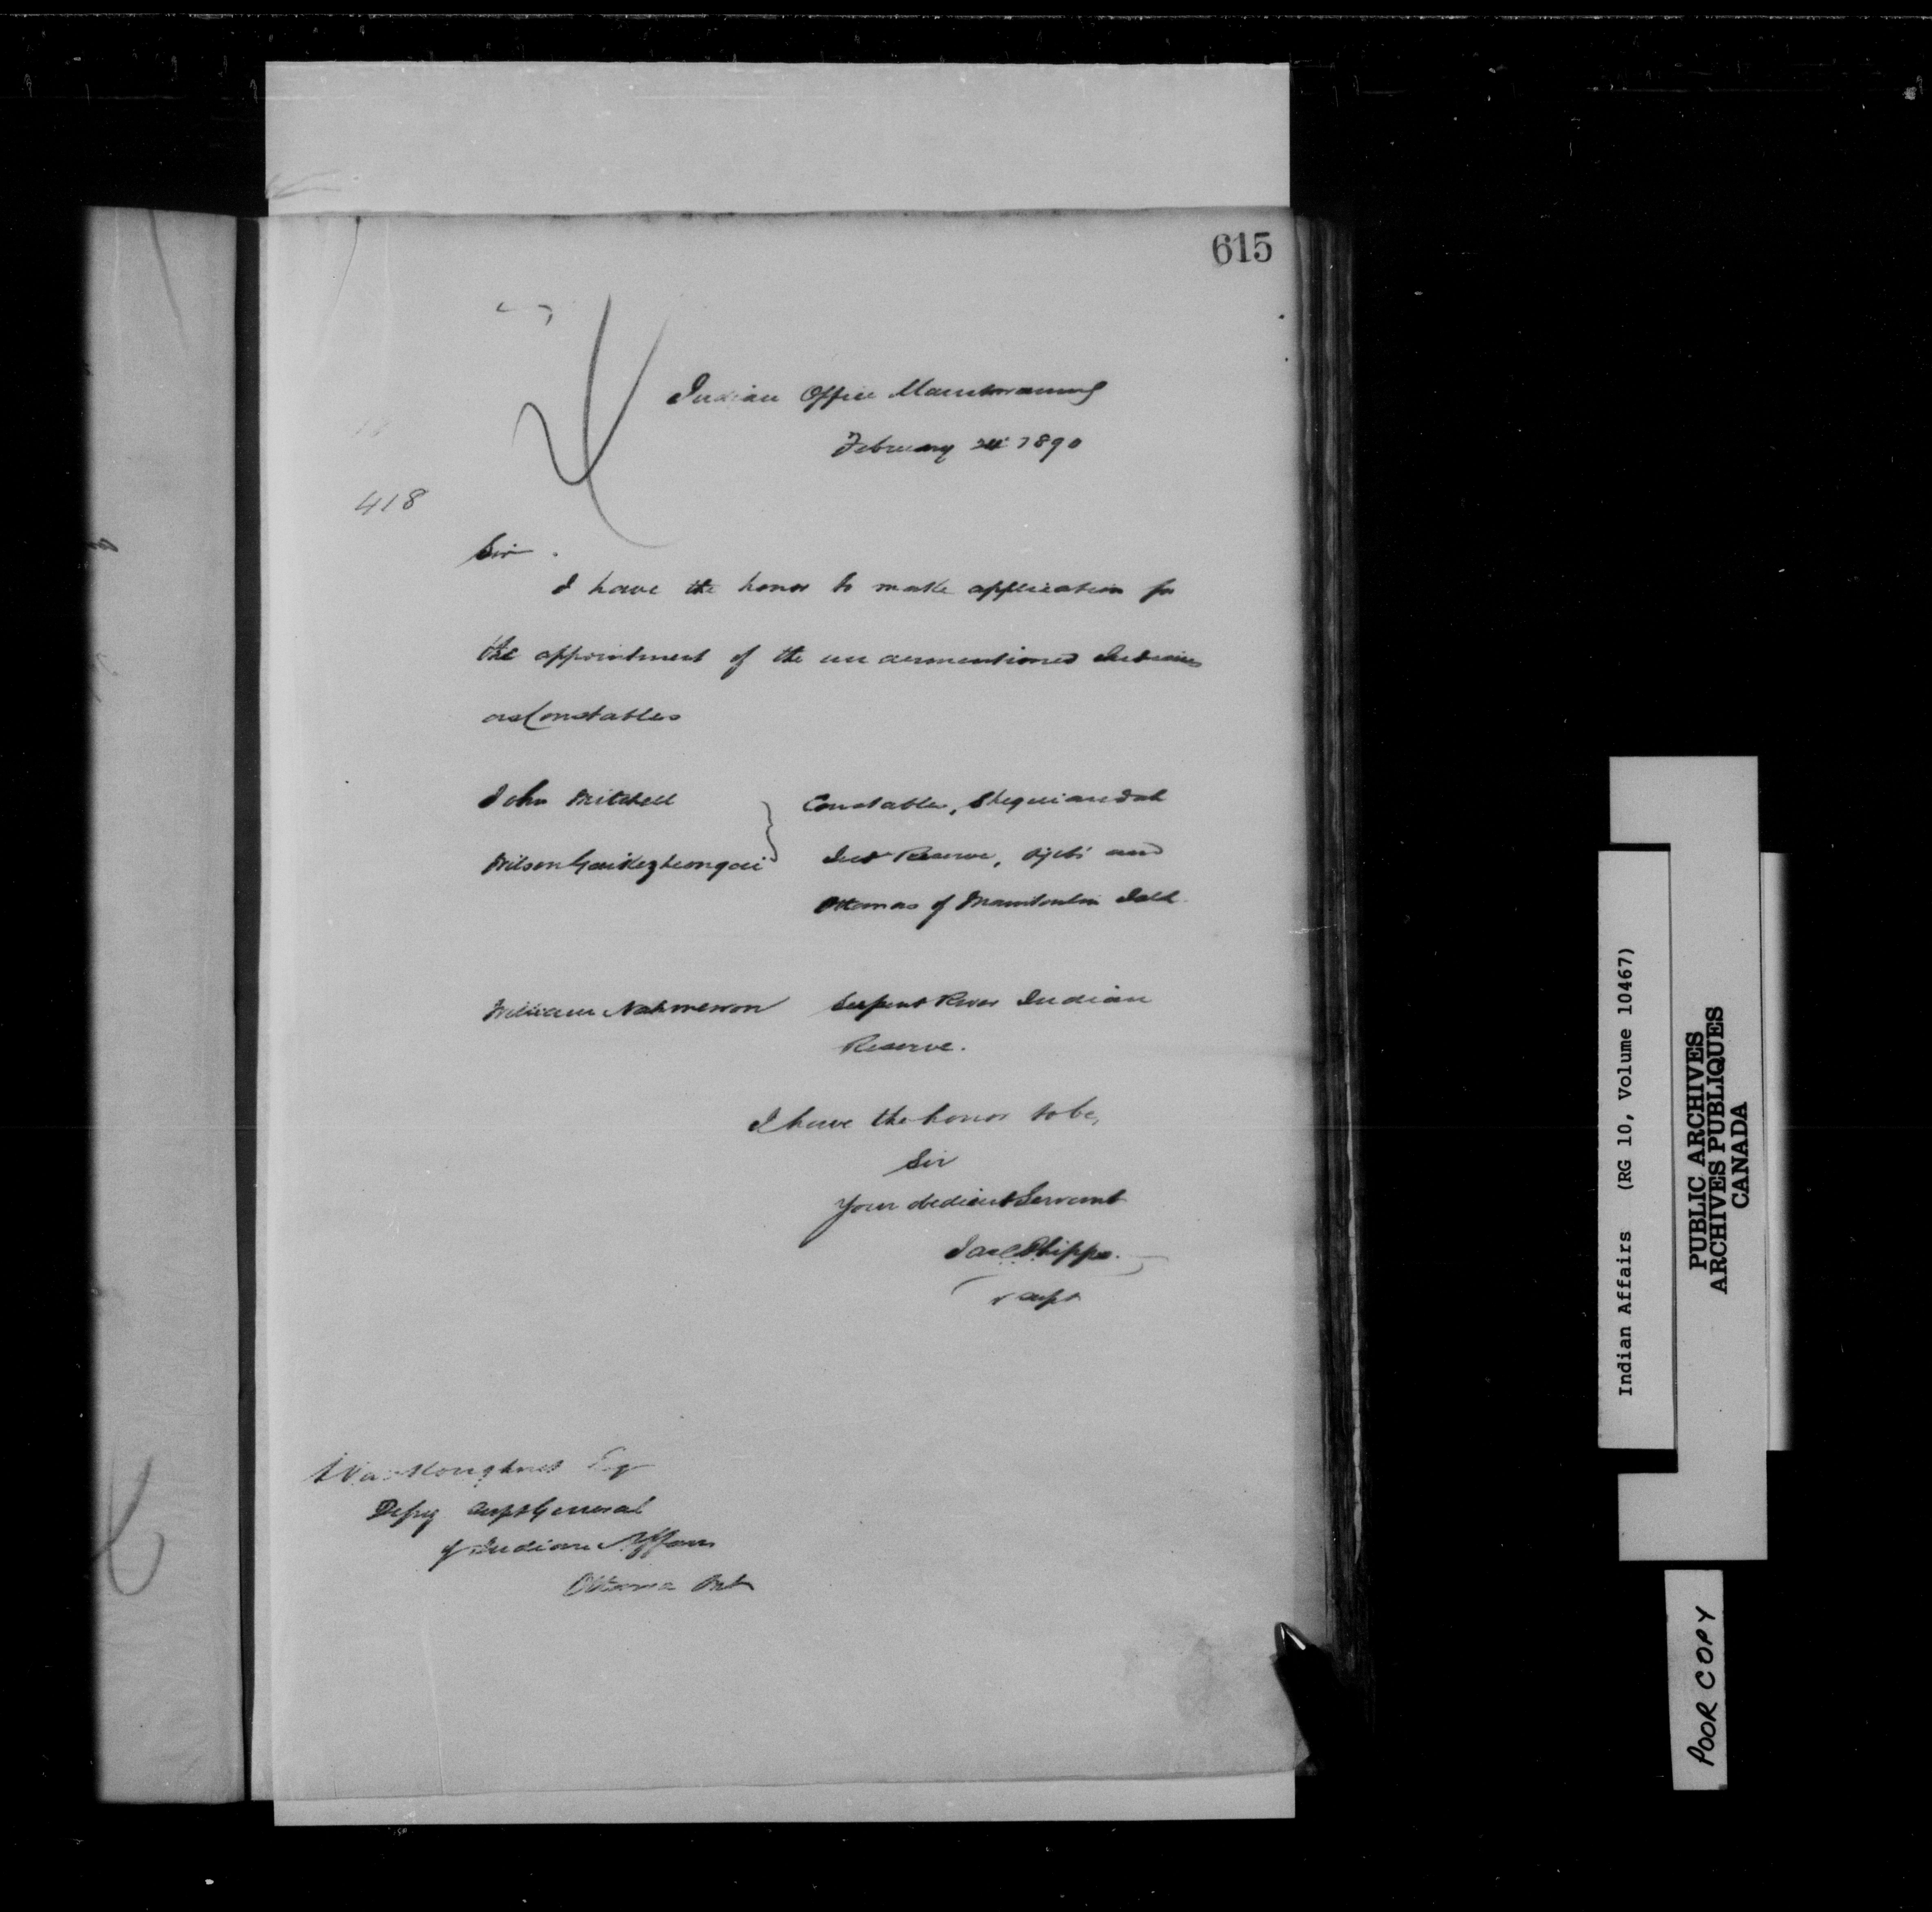 615
Indian Office Manitowaning
February 24 1890
418
Sir
I have the honor to make application for
the appointment of the undermentioned Indians
as Constables
John Mitchell
Wilson
Constables, Sheguiandah
Ind Reserve, Ojibi and
Ottawas of Manitoulin Isld.
William Nahwewon
Serpent River Indian
Reserve.
I have the honor to be,
Sir
Your obedient Servant
Jas C Phipps.
V Supt
L VanKoughnet Esq
Depy Supt General
of Indian Affairs
Ottawa Ont
Indian Affairs (RG 10, Volume 10467)
PUBLIC ARCHIVES
ARCHIVES PUBLIQUES
CANADA
POOR COPY